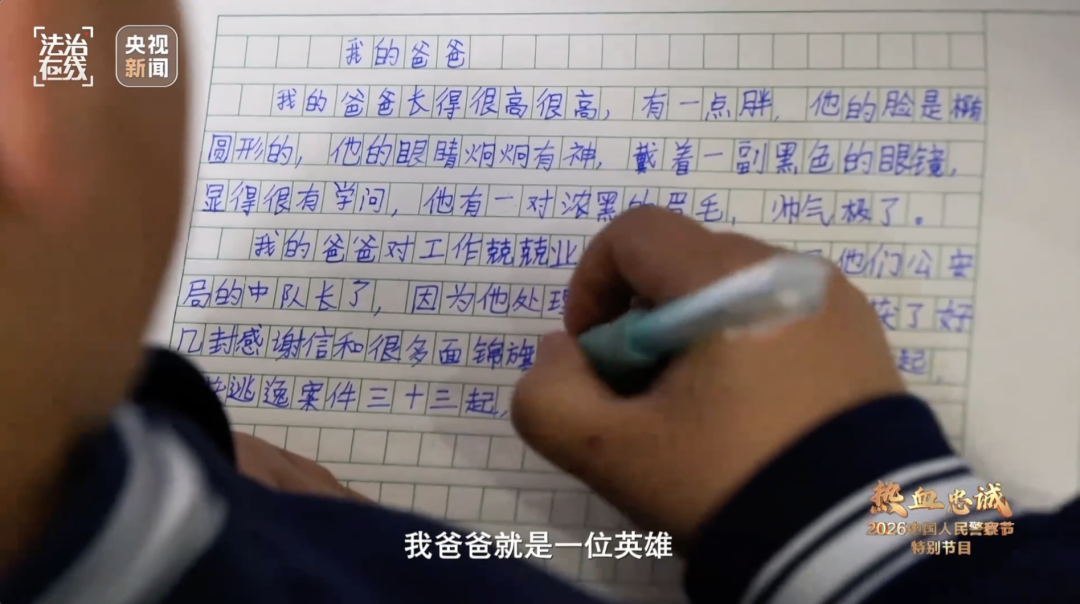 法治在线
央视新闻
我的爸爸
我的爸爸长得很高很高，有一点胖，他的脸是椭
圆形的，他的眼睛炯炯有神，戴着一副黑色的眼镜，
显得很有学问，他有一对浓黑的眉毛，帅气极了。
我的爸爸对工作兢兢业 他们公安
局的中队长了，因为他处理 获了好
几封感谢信和很多面锦旗 起，
逃逸案件三十三起，
热血忠诚
2026中国人民警察节
特别节目
我爸爸就是一位英雄